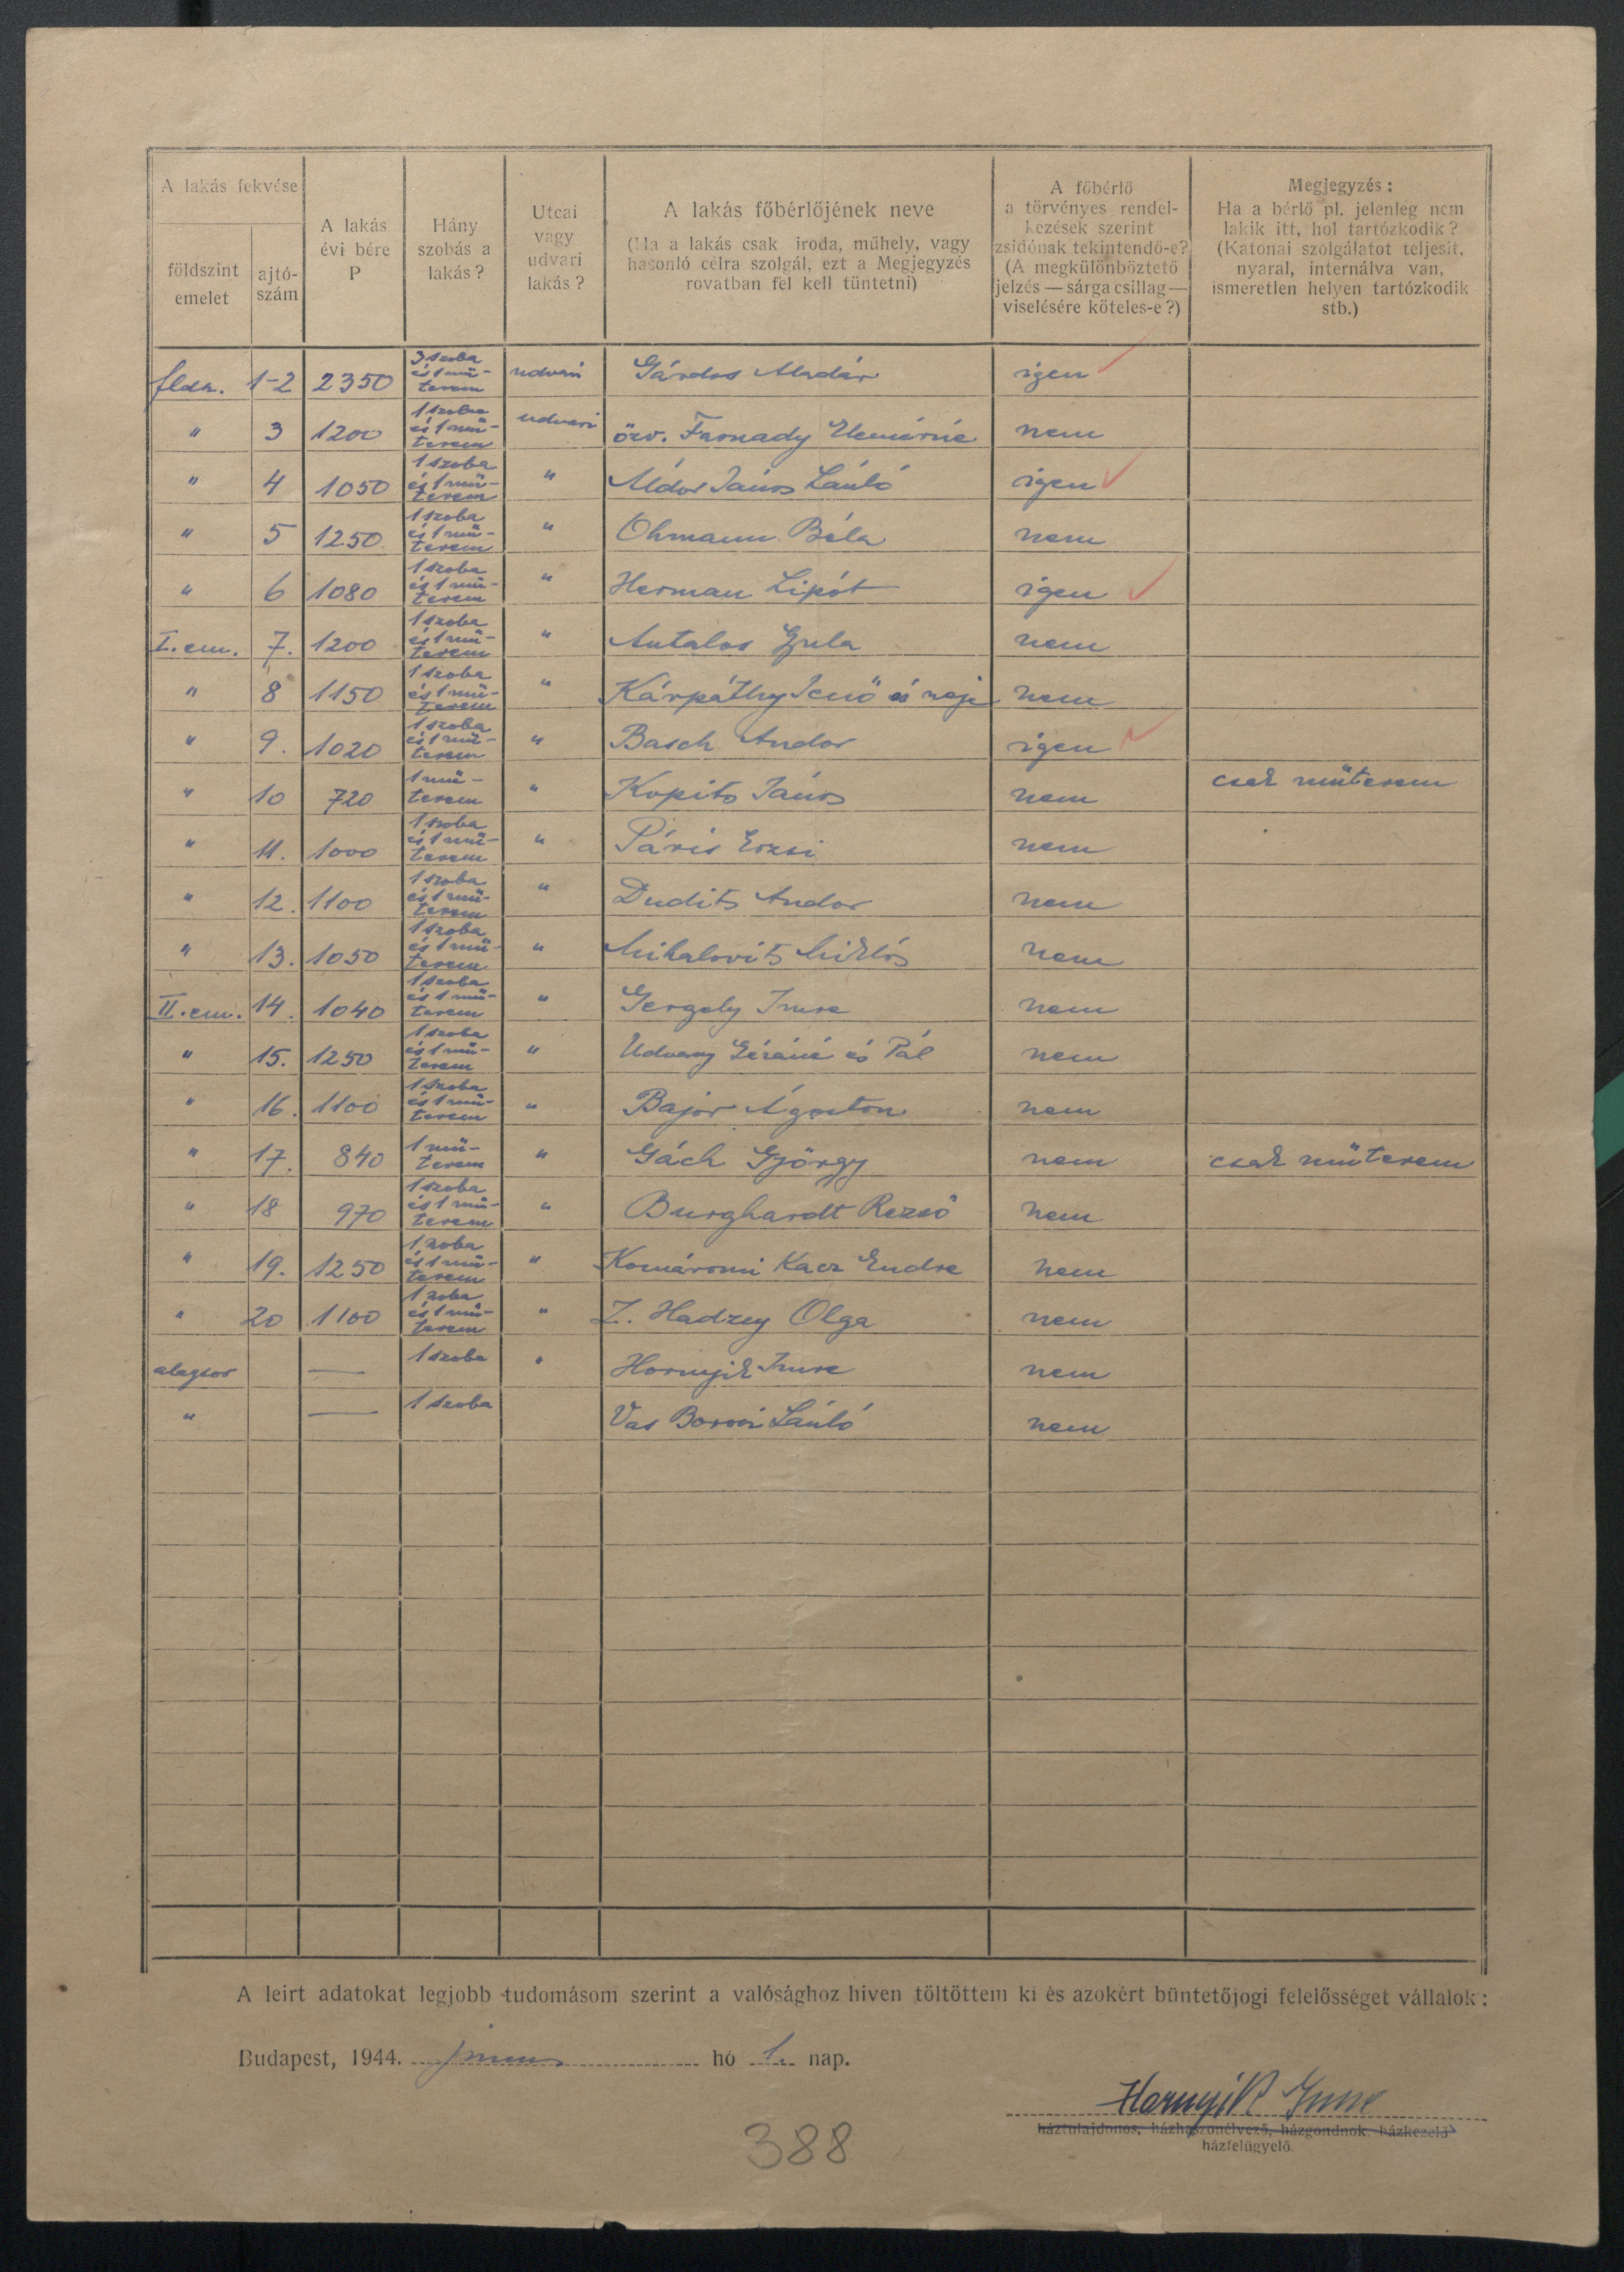 A lakás fekvése
földszint emelet
ajtó-szám
A lakás évi bére P
Hány szobás a lakás?
Utcai vagy udvari lakás?
A lakás főbérlőjének neve
(Ha a lakás csak iroda, műhely, vagy
hasonló célra szolgál, ezt a Megjegyzés
rovatban fel kell tüntetni)
A főbérlő
a törvényes rendel-
kezések szerint
zsidónak tekintendő-e?
(A megkülönböztető
jelzés — sárga csillag —
viselésére köteles-e?)
Megjegyzés:
Ha a bérlő pl. jelenleg nem
lakik itt, hol tartózkodik?
(Katonai szolgálatot teljesit,
nyaral, internálva van,
ismeretlen helyen tartózkodik
stb.)
fldsz. 1-2 2350 3 szoba és 1 mű-terem udvari Gárdos Aladár igen
" 3 1200 1 szoba és 1 mű-terem udvari özv. Farnady Elemérné nem
" 4 1050 1 szoba és 1 mű-terem " Áldor János László igen
" 5 1250 1 szoba és 1 mű-terem " Ohmann Béla nem
" 6 1080 1 szoba és 1 mű-terem " Herman Lipót igen
I. em. 7. 1200 1 szoba és 1 mű-terem " Antalos Gyula nem
" 8 1150 1 szoba és 1 mű-terem " Kárpáthy Jenő és neje nem
" 9. 1020 1 szoba és 1 mű-terem " Basch Andor igen
" 10 720 1 mű-terem " Kopits János nem csak műterem
" 11. 1000 1 szoba és 1 mű-terem " Páris Erzsi nem
" 12. 1100 1 szoba és 1 mű-terem " Dudits Andor nem
" 13. 1050 1 szoba és 1 mű-terem " Mihalovits Miklós nem
II. em. 14. 1040 1 szoba és 1 mű-terem " Gergely Imre nem
" 15. 1250 1 szoba és 1 mű-terem " Udvary Gézáné és Pál nem
" 16. 1100 1 szoba és 1 mű-terem " Bajor Ágoston nem
" 17. 840 1 mű-terem " Gách György nem csak műterem
" 18 970 1 szoba és 1 mű-terem " Burghardt Rezső nem
" 19. 1250 1 szoba és 1 mű-terem " Komáromi Kacz Endre nem
" 20 1100 1 szoba és 1 mű-terem " Z. Hadzsy Olga nem
alagsor — 1 szoba " Hornyik Imre nem
" — 1 szoba Vas László nem
A leirt adatokat legjobb tudomásom szerint a valósághoz hiven töltöttem ki és azokért büntetőjogi felelősséget vállalok:
Budapest, 1944. junius hó 1. nap.
Hornyik Imre
háztulajdonos, házhaszonélvező, házgondnok, házkezelő
házfelügyelő.
388